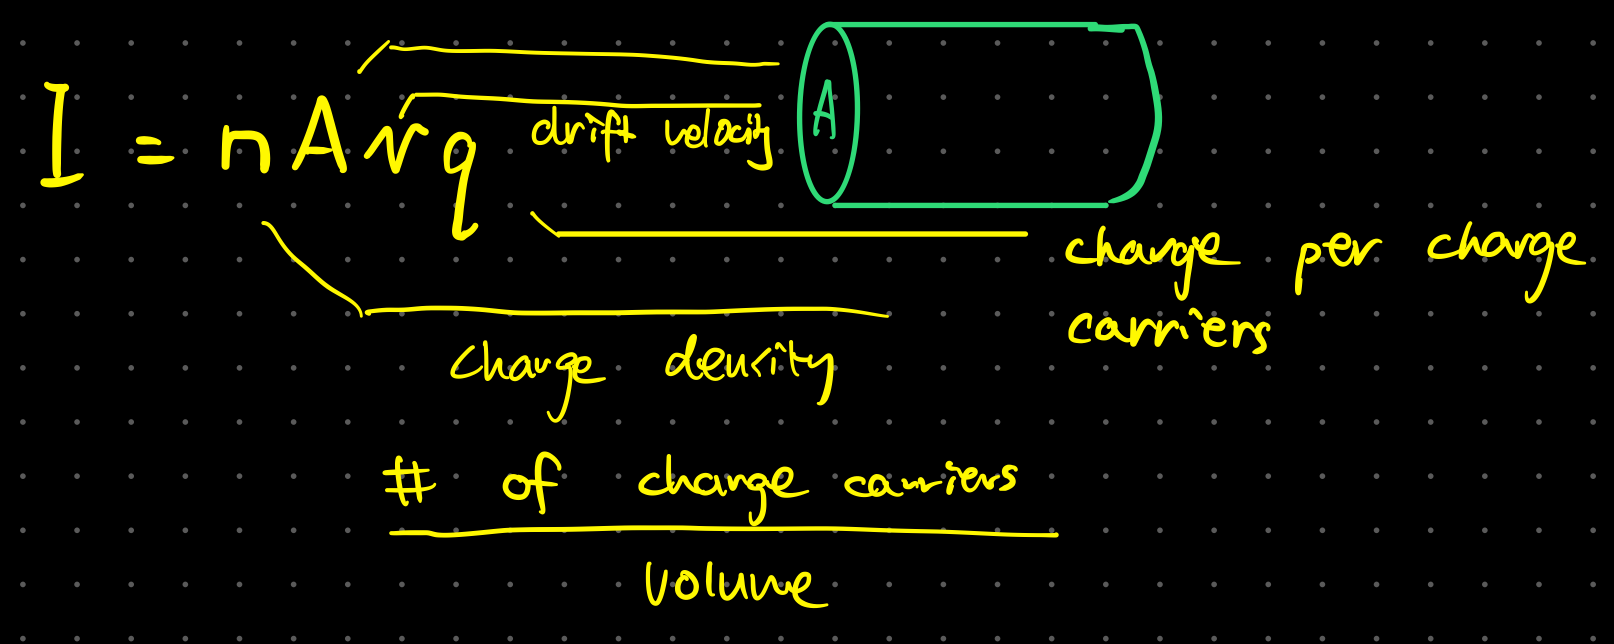 I = nAvq
drift velocity
A
charge per charge
carriers
charge density
# of charge carriers
volume